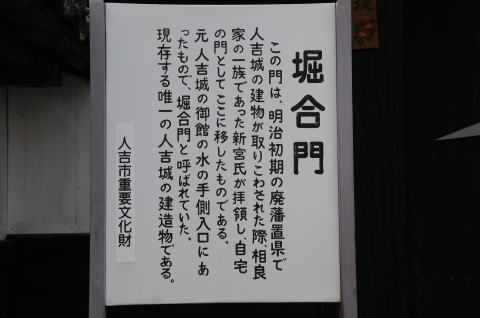 堀合門
この門は、明治初期の廃藩置県で
人吉城の建物が取りこわされた際、相良
家の一族であった新宮氏が拝領し、自宅
の門としてここに移したものである。
元人吉城の御館の水の手側入口にあ
ったもので、堀合門と呼ばれていた。
現存する唯一の人吉城の建造物である。
人吉市重要文化財